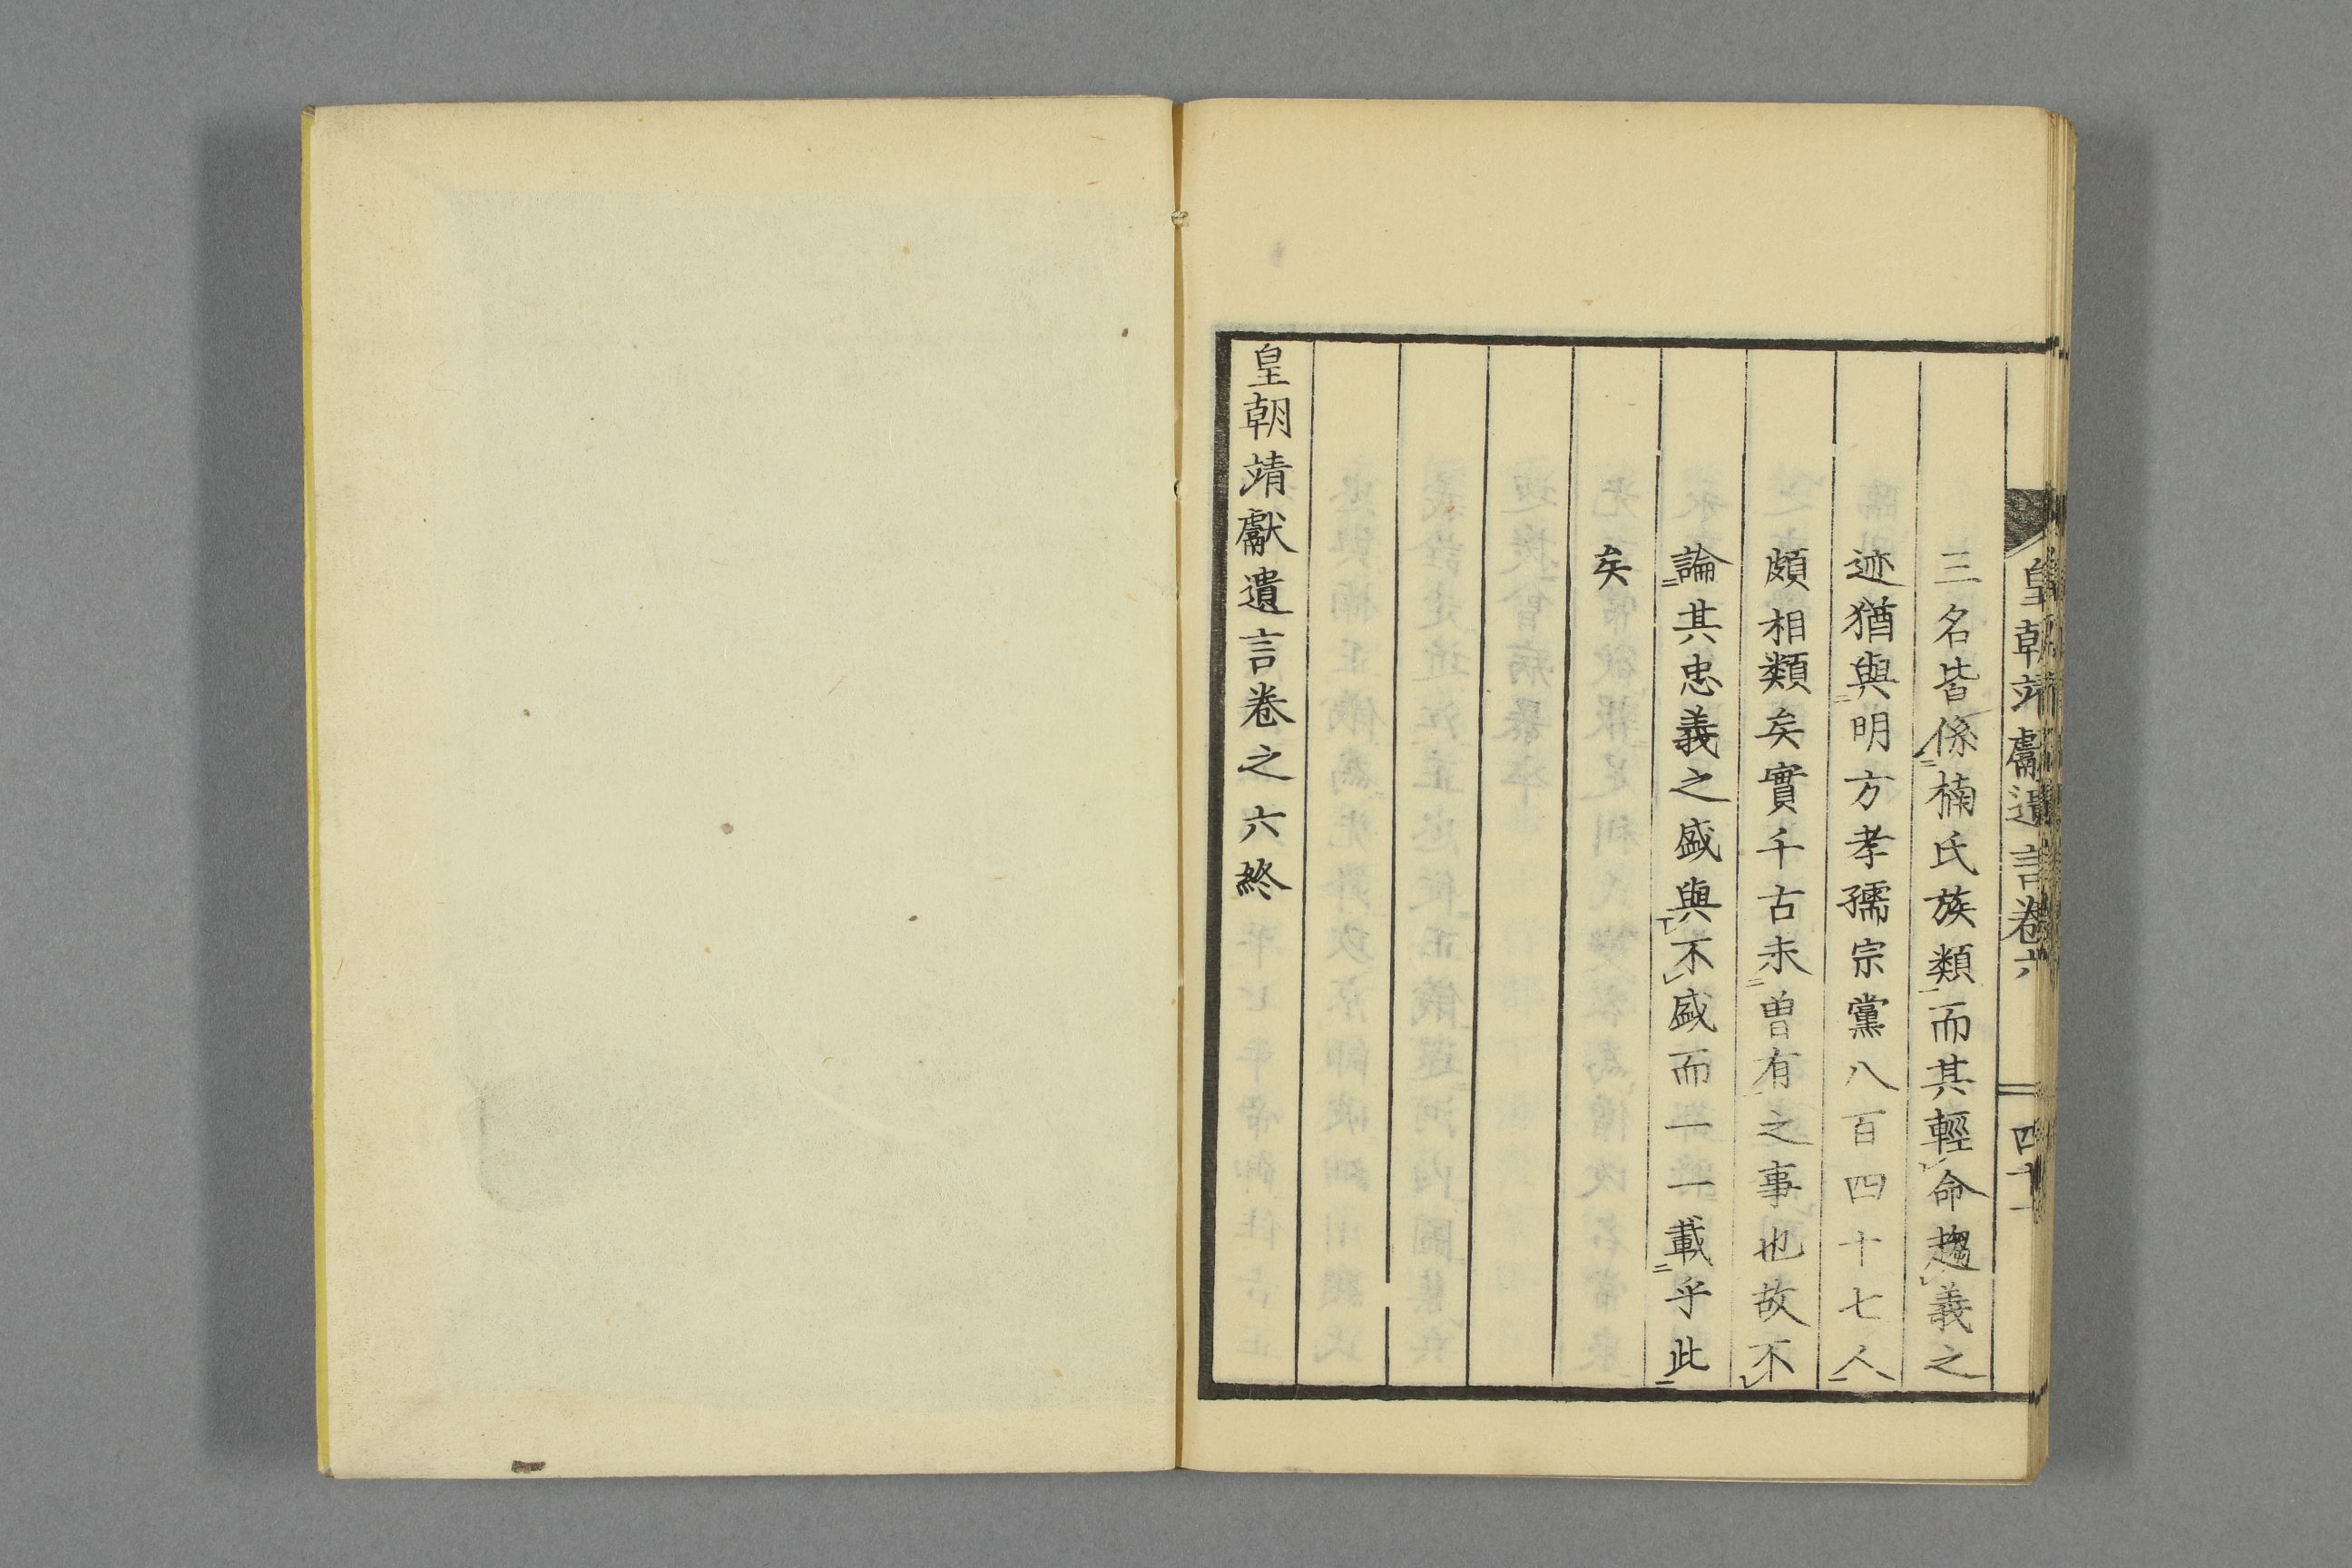 皇朝靖獻遺言卷六
四十一
三名皆係楠氏族類而其輕命趨義之
迹猶與明方孝孺宗黨八百四十七人
頗相類矣實千古未曽有之事也故不
論其忠義之盛與不盛而一一載乎此
矣
皇朝靖獻遺言卷之六終